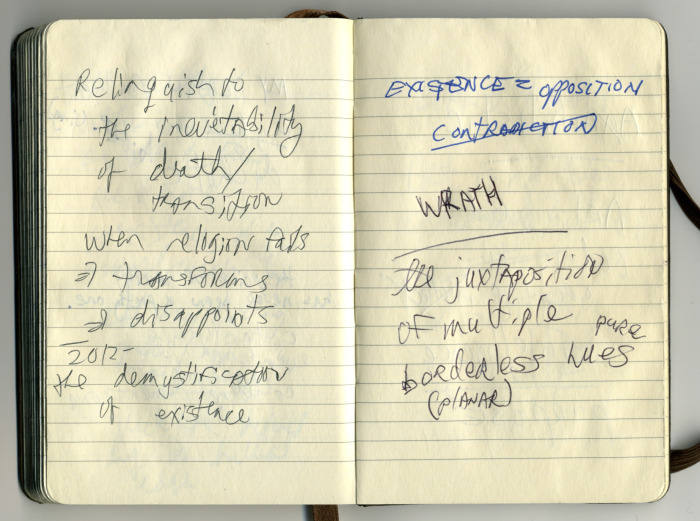 Relinquish to
the inevitability
of death/
transition
when religion fails
⇒ transforms
⇒ disappoints
2012-
the demystification
of existence
EXISTENCE = OPPOSITION
CONTRADICTION
WRATH
the juxtaposition
of multiple pure
borderless hues
(PLANAR)